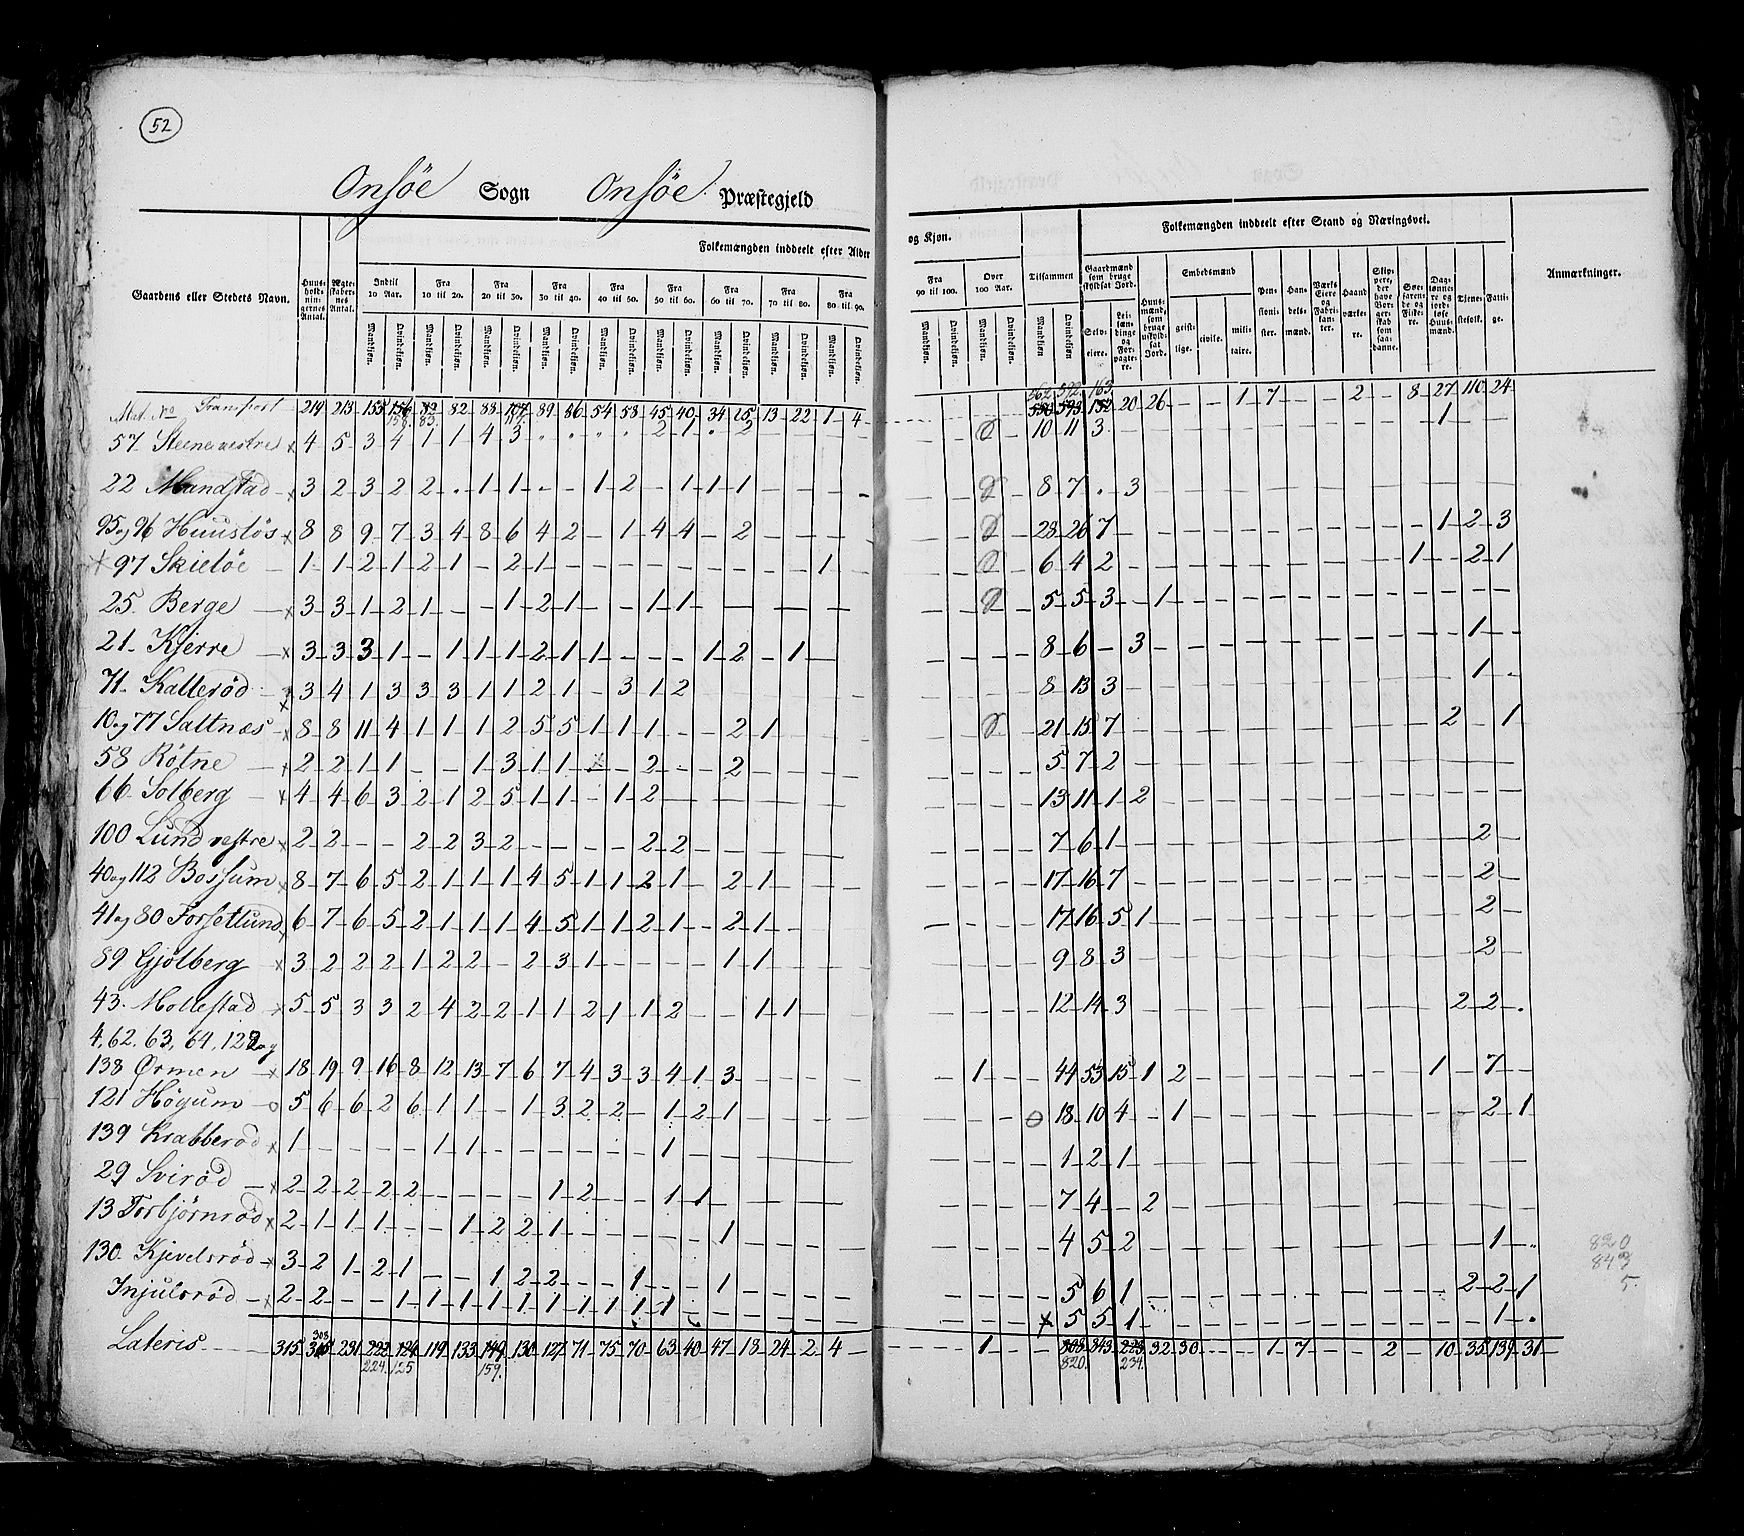 52
Onsöe Sogn Onsöe Præstegjeld
Gaardens eller Stedets Navn.
Huusholdningernes Antal.
Ægteskabernes Antal.
Folkemængden inddeelt efter Alder og Kjøn.
Indtil 10 Aar. Fra 10 til 20. Fra 20 til 30. Fra 30 til 40. Fra 40 til 50. Fra 50 til 60. Fra 60 til 70. Fra 70 til 80. Fra 80 til 90. Fra 90 til 100. Over 100 Aar. Tilsammen
Mandkjøn. Qvindekjøn.
Folkemængden inddeelt efter Stand og Næringsvei.
Gaardmænd som bruge skyldsat Jord. Selveiere. Leilændinge og Forpagtere.
Huusmænd, som bruge uskyldsat Jord.
Embedsmænd geistlige. civile. militaire.
Pensionister. Handelsmænd. Værks Eiere og Fabrikanter. Haandværkere. Skippere, der have Borgerskab som saadanne. Søefarende og Fiskere. Daglønnere og jordløse Huusmænd. Tjenestefolk. Fattige.
Anmærkninger.
Mat. No Transport 214 213 155 156 82 83 88 107 89 86 54 58 45 40 34 25 13 22 1 4 562 592 163 20 26 1 7 2 8 27 110 24
57 Steene vestre x 4 5 3 4 1 1 4 3 2 1 2 10 11 3 1
22 Mandstad x 3 2 3 2 2 1 1 1 2 1 1 1 8 7 3
95 og 96 Huusløs x 8 8 9 7 3 4 8 6 4 2 1 4 4 2 28 26 7 1 2 3
x 97 Skieløe 1 1 2 1 2 1 2 1 1 6 4 2 1 2 1
25 Berge x 3 3 1 2 1 1 2 1 1 1 5 5 3 1
21 Kjerre x 3 3 3 1 1 1 1 2 1 1 1 2 1 8 6 3 1
71 Kallerød x 3 4 1 3 3 3 1 1 2 1 3 1 2 8 13 3 1
10 og 77 Saltnæs x 8 8 11 4 1 1 1 2 5 5 1 1 1 2 1 21 15 7 2 1
58 Røtne x 2 2 1 1 1 3 1 1 2 2 5 7 2
66 Solberg x 4 4 6 3 2 1 2 5 1 1 1 2 13 11 1 2
100 Lund vestre x 2 2 2 2 3 2 2 2 7 6 1 2
40 og 112 Bossum x 8 7 6 5 2 1 1 1 4 5 1 1 2 1 2 1 17 16 7 2
41 og 80 Forsetlund x 6 7 6 5 2 1 1 1 4 5 1 1 2 1 2 1 17 16 5 1 2
89 Gjølberg x 3 2 2 2 1 2 2 2 3 1 1 1 9 8 3 2
43 Mollestad x 5 5 3 3 2 4 2 2 1 1 2 1 1 2 1 1 12 14 3 2 2
4, 62, 63, 64, 122 og
138 Ørmen x 18 19 9 16 8 12 13 7 6 7 4 3 3 4 1 3 1 44 53 15 1 2 1 7
121 Høgum o 5 6 6 2 6 1 1 1 3 2 2 1 2 1 18 10 4 1 2 1
139 Krabberød x 1 1 1 1 1 2 1
29 Svirød x 2 2 2 2 2 1 2 1 1 7 4 2
13 Torbjørnrød x 2 1 1 1 1 2 2 1 1 4 5 2 1
130 Kjevelsrød x 3 2 1 2 1 1 2 2 1 1 5 6 1 2 2 1
Injulsrød x 2 2 1 1 1 1 1 1 1 1 1 1 x 5 5 1 1
Lateris 315 308 231 222 124 119 133 149 130 127 71 75 70 63 40 47 18 24 2 4 1 808 843 223 32 30 1 7 2 10 35 139 31
224 125 159. 820. 234.
820
843
5.